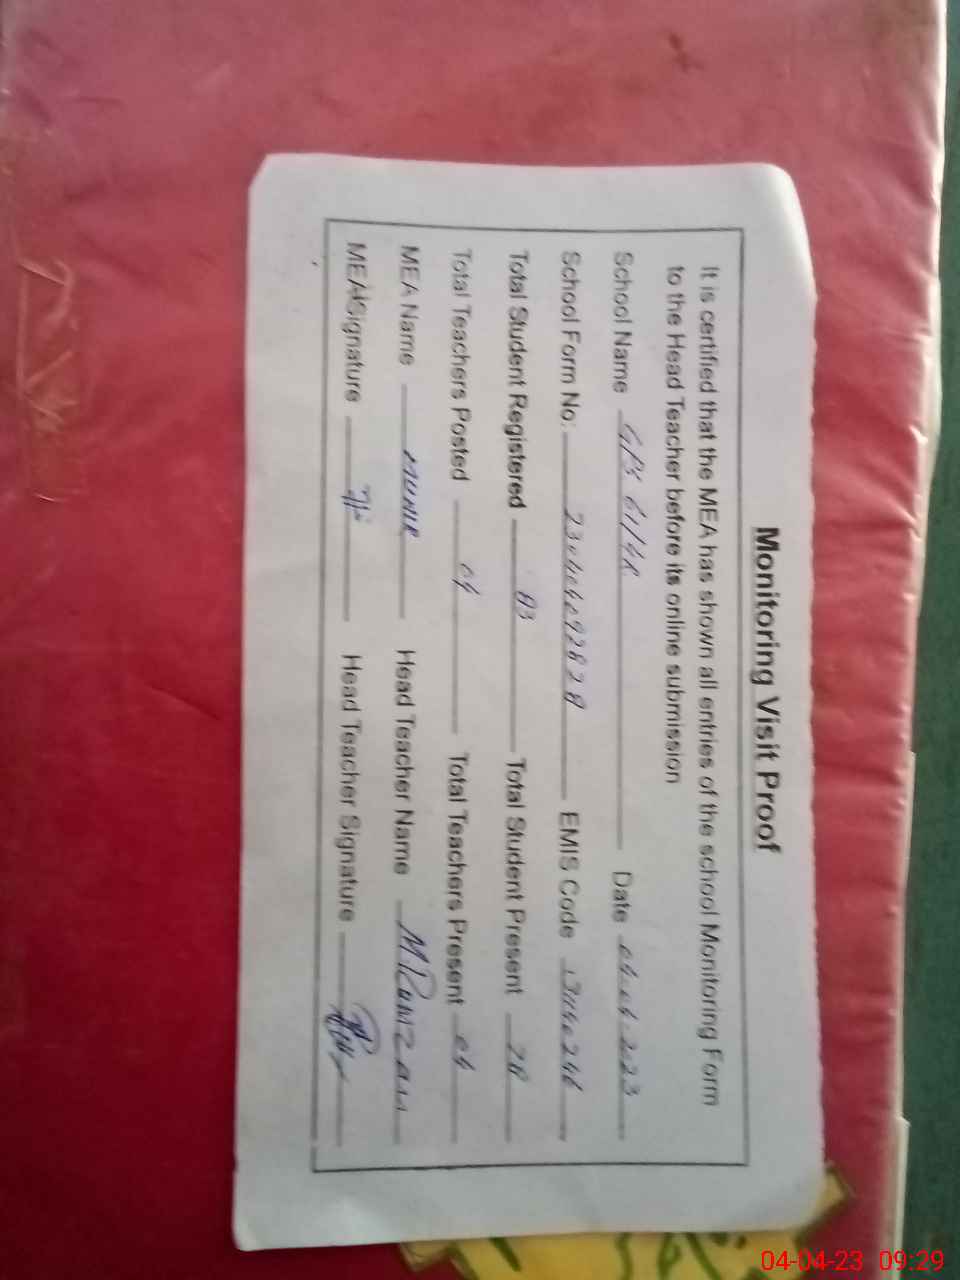 Monitoring Visit Proof
It is certified that the MEA has shown all entries of the school Monitoring Form
to the Head Teacher before its online submission
School Name GPS 61/4R Date 04-04-2023
School Form No: EMIS Code
Total Student Registered 83 Total Student Present 78
Total Teachers Posted 04 Total Teachers Present 04
MEA Name MUNIR Head Teacher Name M. Ramzan
MEA Signature Head Teacher Signature
04-04-23 09:29